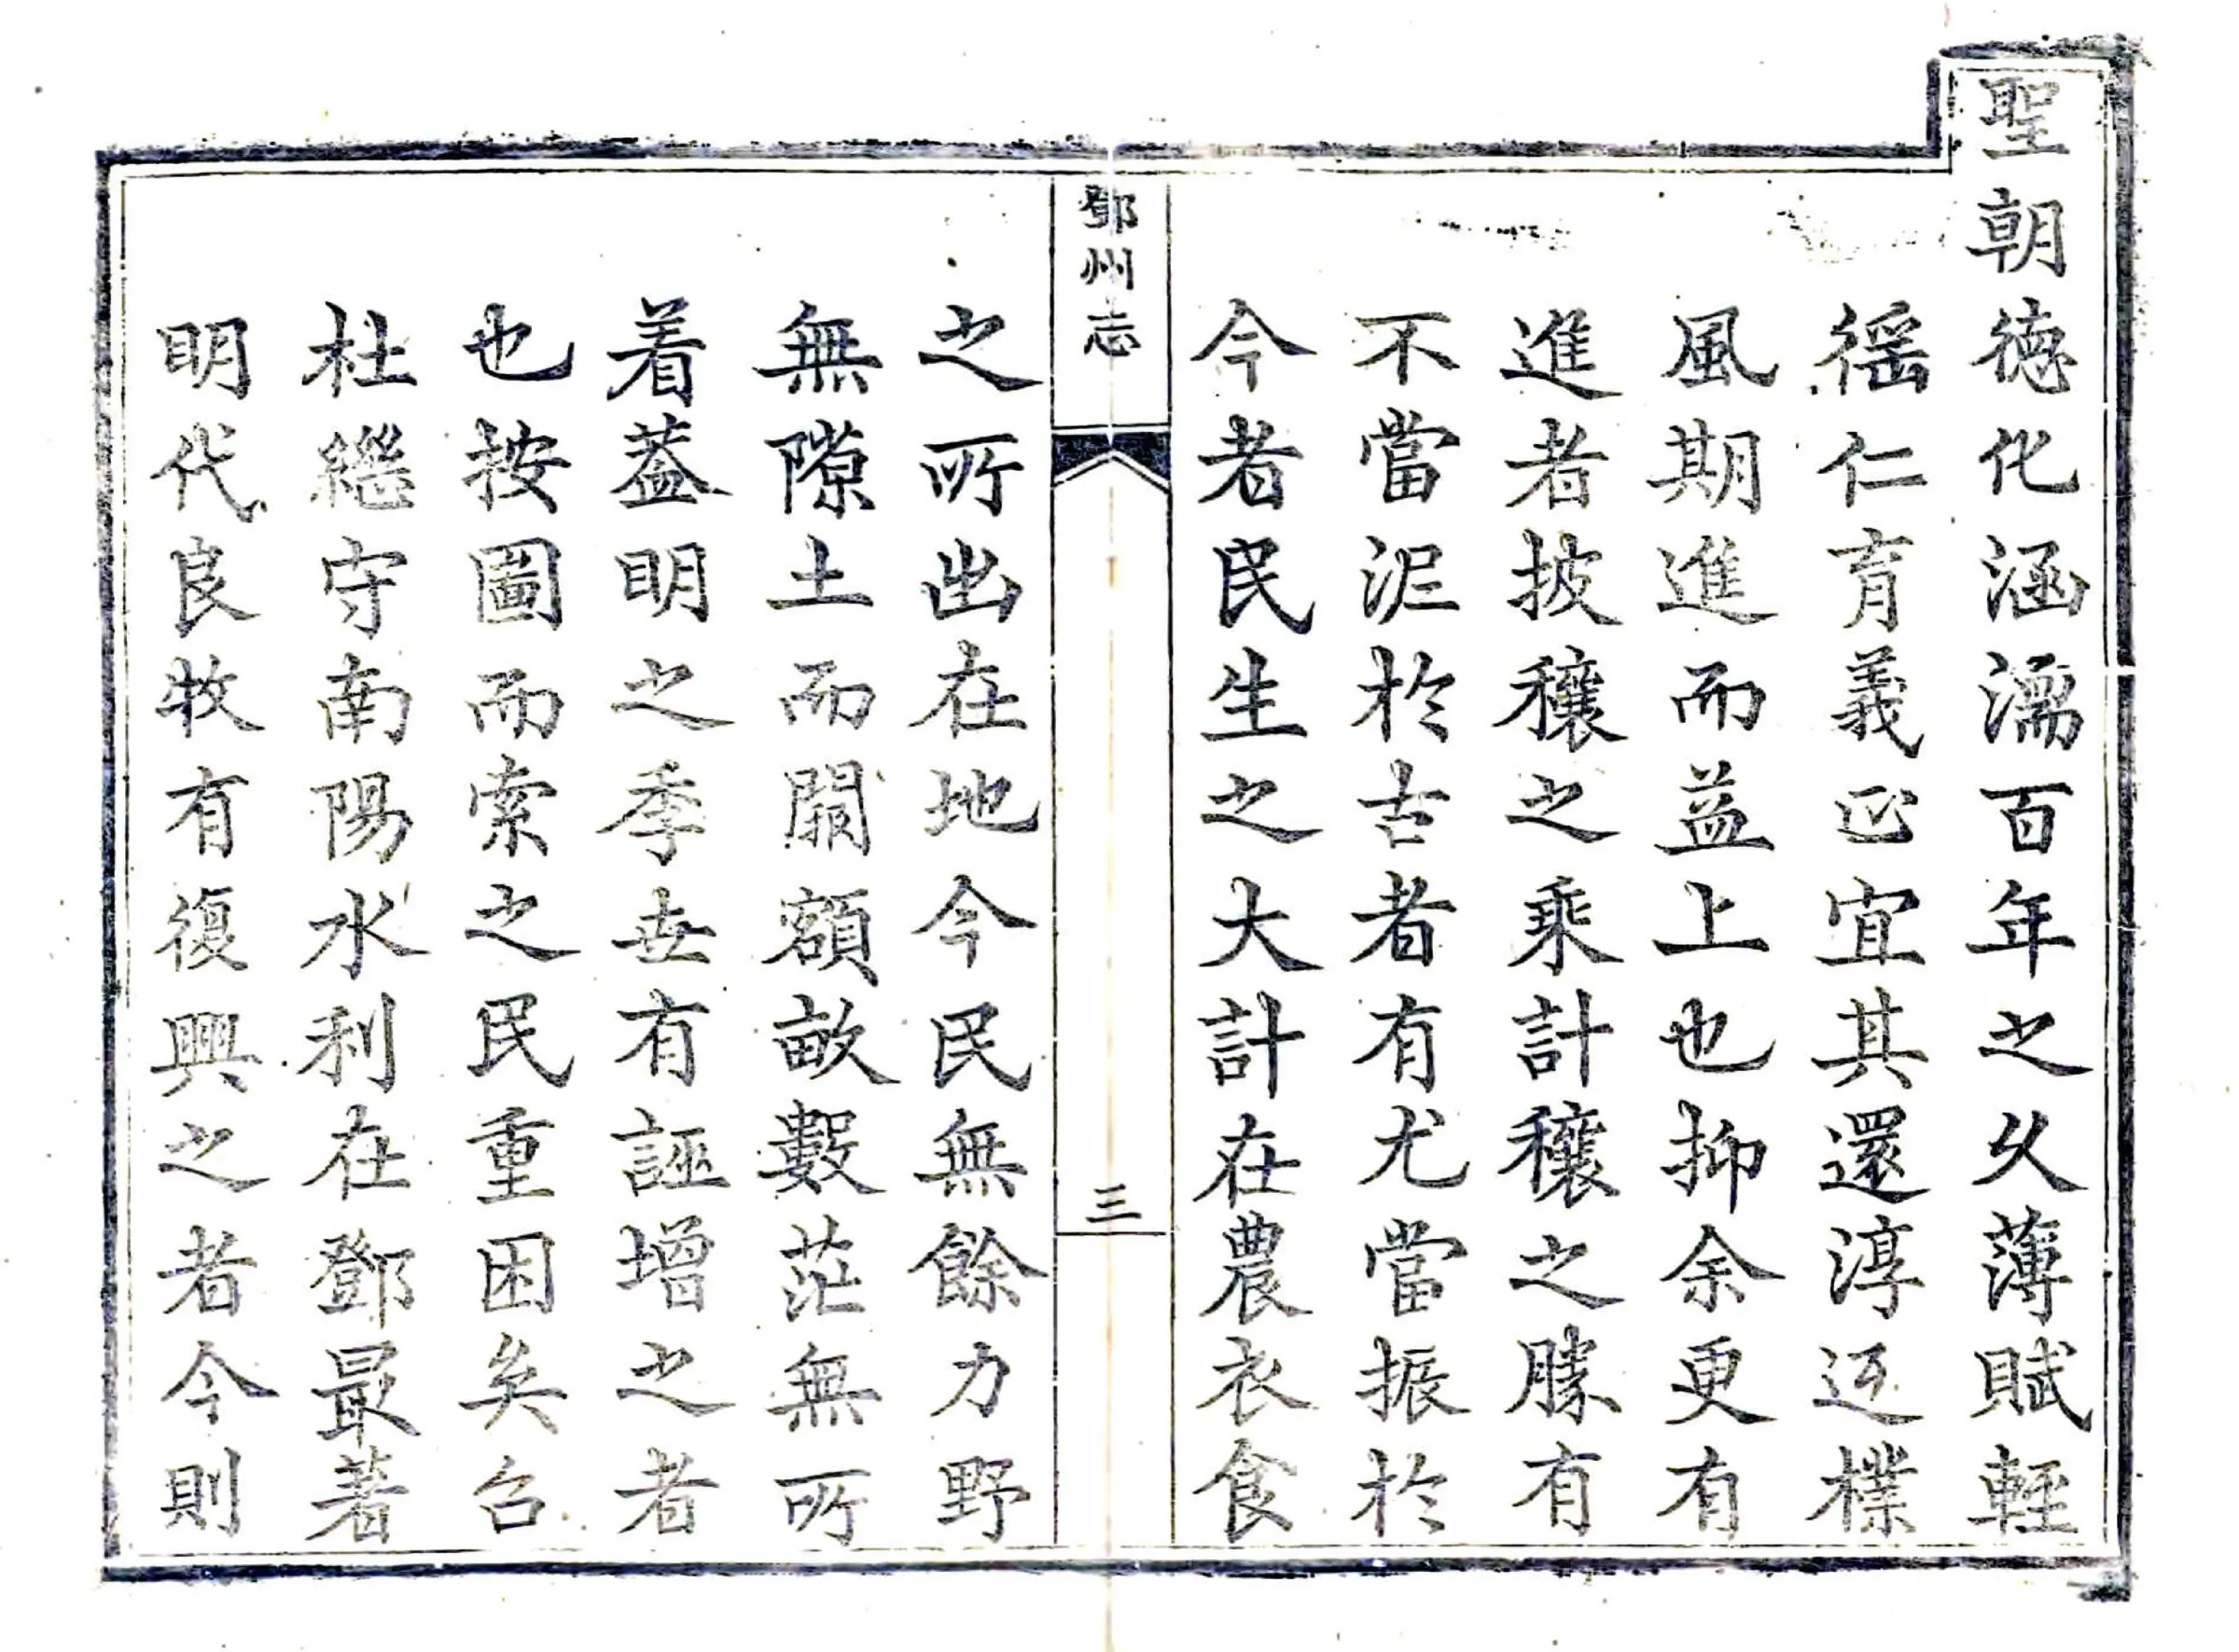 聖朝德化涵濡百年之久薄賦輕
徭仁育義正宜其還淳返樸
風期進而益上也抑余更有
進者披穰之乘計穰之勝有
不當泥於古者有尤當振於
今者民生之大計在農衣食
鄧州志
三
之所出在地今民無餘力野
無隙土而關額畝數茫無所
着蓋明之季世有誣增之者
也按圖而索之民重困矣召
杜繼守南陽水利在鄧最著
明代良牧有復興之者今則